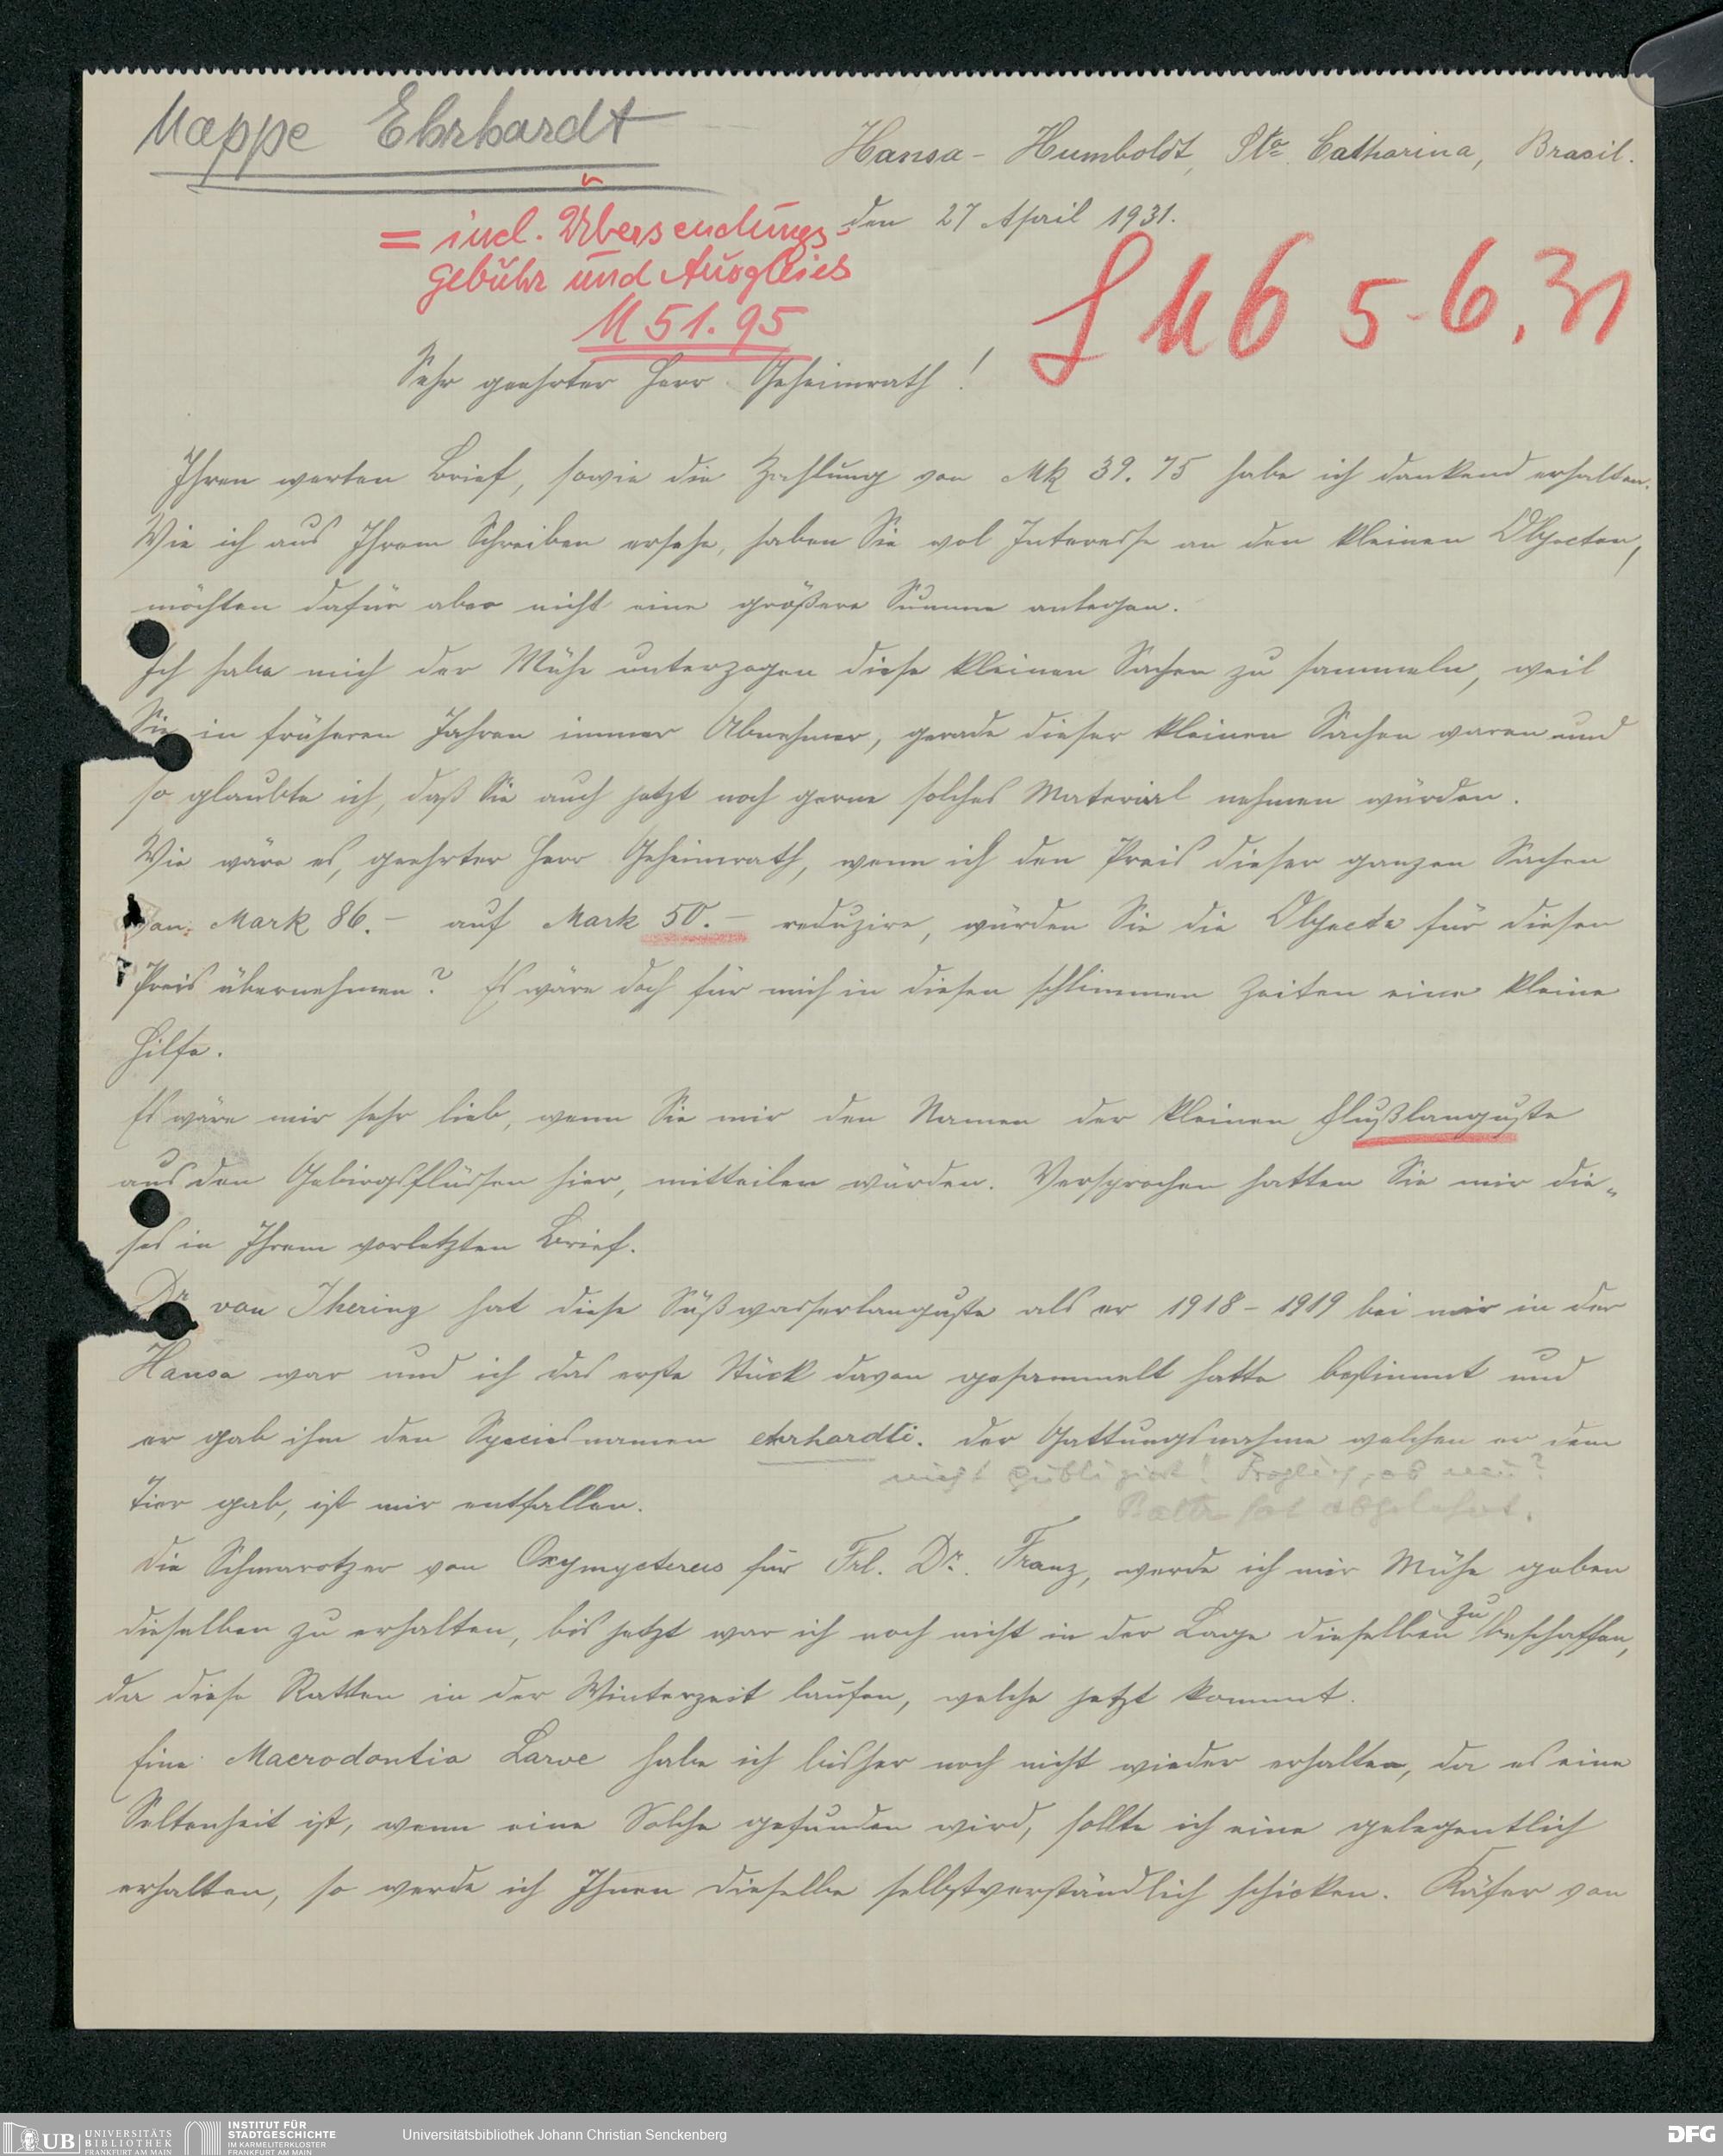 Mappe Ehrhardt
Hansa-Humboldt, Sta Catharina, Brasil.
den 27 April 1931.
= incl. Übersendungs-
gebühr und Ausglies
M 51.95
5.6.31
Sehr geehrter Herr Geheimrath!
Ihren werten Brief, sowie die Zahlung von Mk 39.75 habe ich dankend erhalten.
Wie ich aus Ihrem Schreiben ersehe, haben Sie wol Interesse an den kleinen Objecten,
möchten dafür aber nicht eine größere Summe anlegen.
Ich habe mich der Mühe unterzogen diese kleinen Sachen zu sammeln, weil
Sie in früheren Jahren immer Abnehmer, gerade dieser kleinen Sachen waren und
so glaubte ich, daß Sie auch jetzt noch gerne solches Material nehmen würden.
Wie wäre es, geehrter Herr Geheimrath, wenn ich den Preis dieser ganzen Sachen
von Mark 86.– auf Mark 50.– reduzire, würden Sie die Objecte für diesen
Preis übernehmen? Es wäre doch für mich in diesen schlimmen Zeiten eine kleine
Hilfe.
Es wäre mir sehr lieb, wenn Sie mir den Namen der kleinen Flußlanguste
aus den Gebirgsflüssen hier, mitteilen würden. Versprochen hatten Sie mir die„
ses in Ihrem vorletzten Brief.
Dr von Ihering hat diese Süßwasserlanguste als er 1918–1919 bei mir in der
Hansa war und ich das erste Stück davon gesammelt hatte bestimmt und
er gab ihm den Speciesnamen ehrhardti. der Gattungsnahme welchen er dem
nicht publiziert! Fraglich, ob neu?
Tier gab, ist mir entfallen.
hat abgelehnt.
Die Schmarotzer von Oxymycterus für Frl. Dr. Franz, werde ich mir Mühe geben
dieselben zu erhalten, bis jetzt war ich noch nicht in der Lage dieselben zu beschaffen,
da diese Ratten in der Winterzeit laufen, welche jetzt kommt.
Eine Macrodontia Larve habe ich bisher noch nicht wieder erhalten, da es eine
Seltenheit ist, wenn eine Solche gefunden wird, sollte ich eine gelegentlich
erhalten, so werde ich Ihnen dieselbe selbstverständlich schicken. Käfer von
UB UNIVERSITÄTS
BIBLIOTHEK
FRANKFURT AM MAIN
INSTITUT FÜR
STADTGESCHICHTE
IM KARMELITERKLOSTER
FRANKFURT AM MAIN
Universitätsbibliothek Johann Christian Senckenberg
DFG